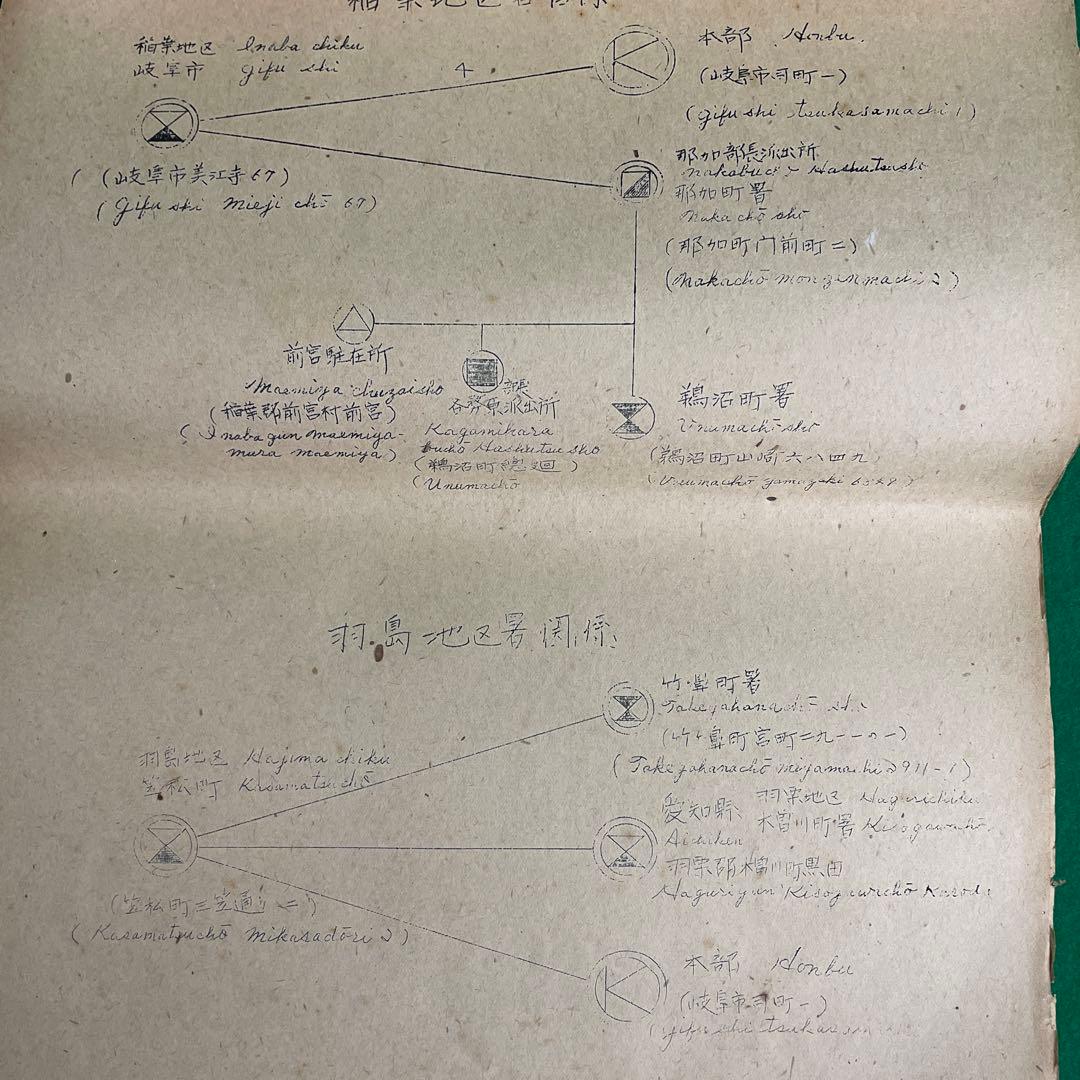 稲葉地区署関係
稲葉地区 Inaba chiku
岐阜市 gifu shi
4
K
本部 Honbu.
(岐阜市司町一)
(gifu shi tsukasamachi 1)
(岐阜市美江寺67)
(Gifu shi mieji chō 67)
那加部長派出所
Hashutsusho
那加町署
naka chō sho
(那加町門前町二)
(nakachō monzenmachi 2)
前宮駐在所
Maemiya chuzaisho
(稲葉郡前宮村前宮)
(Inaba gun maemiya-
mura maemiya)
部長
各務原派出所
Kagamihara
buchō Hashutsu sho
(鵜沼町
Unumachō
鵜沼町署
Unumachō sho
(鵜沼町山崎六八四九
(Unumachō yamazaki
羽島地区署関係
羽島地区 Hajima chiku
笠松町 Kasamatsuchō
(笠松町三笠通り二)
(Kasamatsuchō mikasadōri 2)
竹ヶ鼻町署
Takegahanachō sho
(竹ヶ鼻町宮町二九一一の一)
(Takegahanachō miyamachi 2911-1)
愛知縣 羽栗地区 Hagurichiku
Aichiken 木曽川町署 Kisogawachō.
羽栗郡木曽川町黒田
Hagurigun Kisogawachō Kuroda
K
本部 Honbu
(岐阜市司町一)
(gifu shi